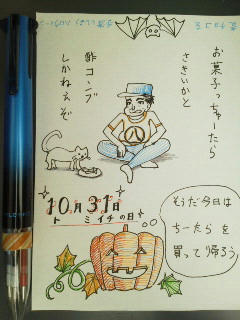 お菓子っちゅーたら
さきいかと
酢コンブ
しかねぇぞ
10月31日
トミイチの日
そうだ今日は
ちーたらを
買って帰ろう